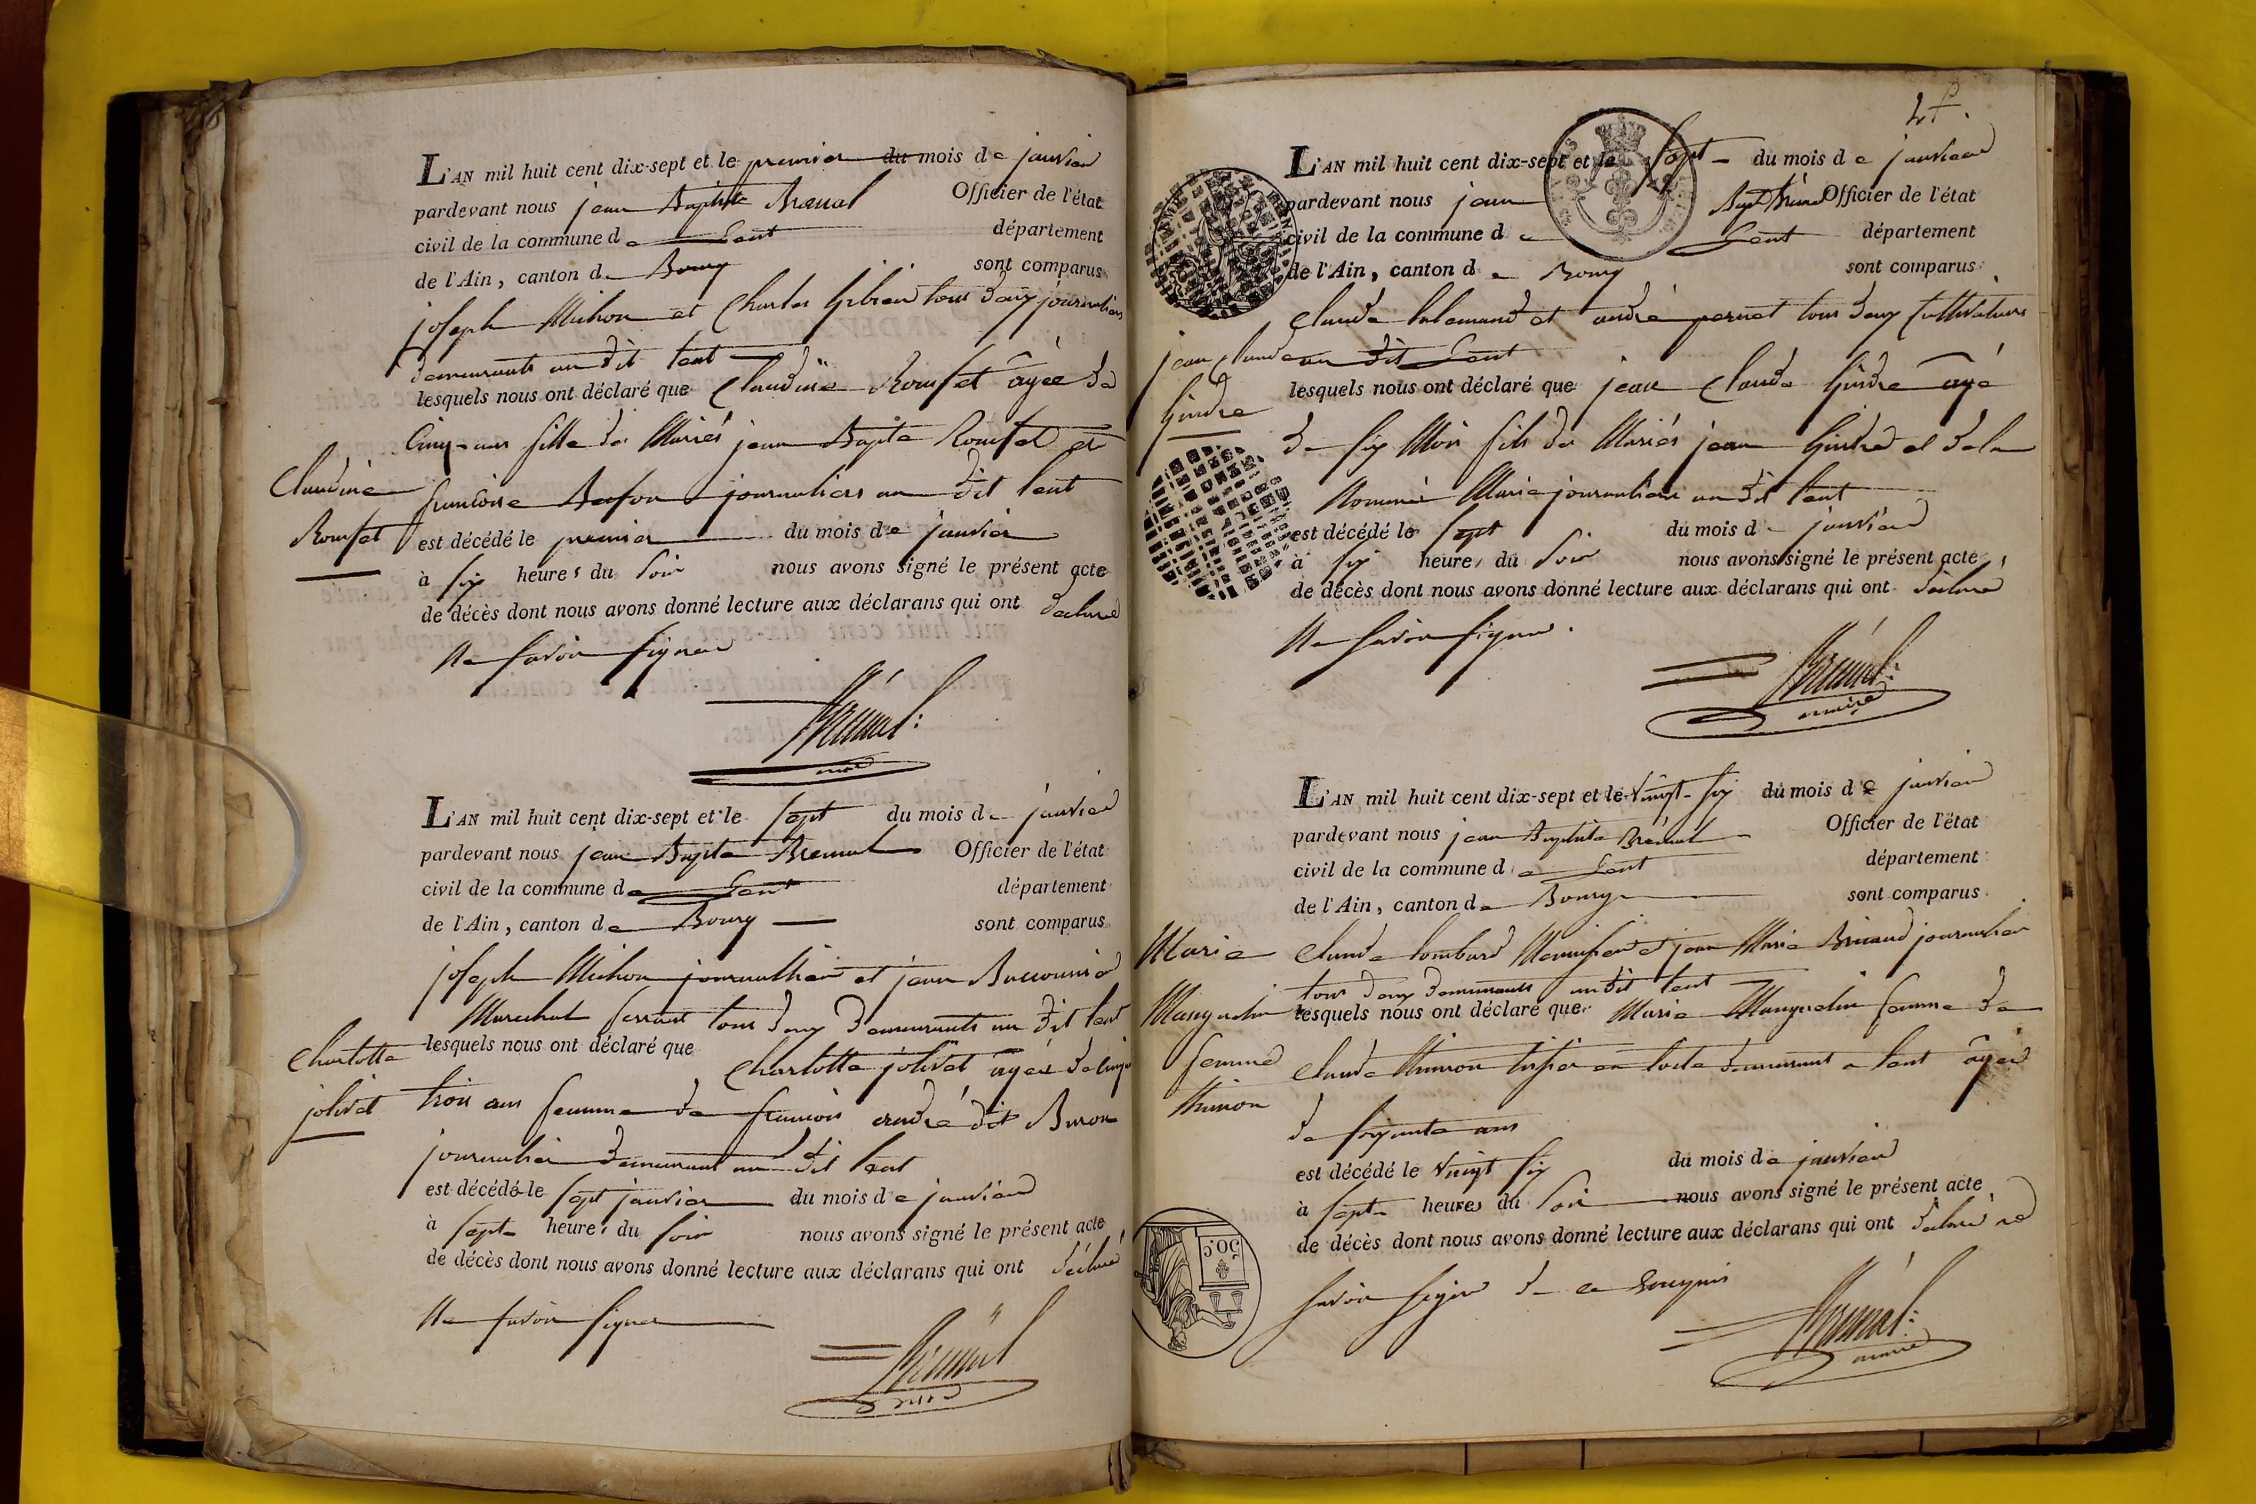 L'AN mil huit cent dix-sept et le premier du mois de janvier
pardevant nous jean Baptiste Brémal Officier de l'état
civil de la commune de Lent département
de l'Ain, canton de Bourg sont comparus
joseph Michon et Charles tous deux journaliers
demeurants au dit lent
lesquels nous ont déclaré que Claudine Rousset âgée de
Cinq ans fille des Mariés jean Bapte Rousset et
françoise journaliers au dit lent
Claudine
Rousset
est décédé le premier du mois de janvier
à six heures du soir nous avons signé le présent acte
de décès dont nous avons donné lecture aux déclarans qui ont déclaré
Ne savoir signer
Brémal
maire
L'AN mil huit cent dix-sept et le sept du mois de janvier
pardevant nous jean Bapte Bremal Officier de l'état
civil de la commune de Lent département
de l'Ain, canton de Bourg sont comparus
joseph Michon journallier et jean
Marechal ferrant tous deux demeurants au dit lent
Charlotte
jolivet
lesquels nous ont déclaré que Charlotte jolivet âgée de cinq
trois ans femme de francois andré dit Buron
journalier demeurant au dit lent
est décédé le sept janvier du mois de janvier
à sept heures du soir nous avons signé le présent acte
de décès dont nous avons donné lecture aux déclarans qui ont déclaré
Ne savoir signer
Brémal
maire
4
L'AN mil huit cent dix-sept et le sept du mois de janvier
pardevant nous jean Bapt Brémal Officier de l'état
civil de la commune de Lent département
de l'Ain, canton de Bourg sont comparus
Claude lalemand et andré pernet tous deux Cultivateurs
au dit Lent
jean Claude
Gindre
lesquels nous ont déclaré que jean Claude Gindre âgé
de six Mois fils des Mariés jean Gindre et de la
Nommée Marie journaliers au dit lent
est décédé le sept du mois de janvier
à six heures du soir nous avons signé le présent acte
de décès dont nous avons donné lecture aux déclarans qui ont déclaré
Ne savoir signer.
Brémal
maire
L'AN mil huit cent dix-sept et le vingt-six du mois de janvier
pardevant nous jean Baptiste Brémal Officier de l'état
civil de la commune de Lent département
de l'Ain, canton de Bourg sont comparus
Claude lombard Menuisier et jean Marie Bricaud journalier
tous deux demeurants au dit lent
Marie
Manguelin
femme
lesquels nous ont déclaré que Marie Manguelin femme de
Claude tissier en toile demeurant a lent âgée
de soixante ans
est décédé le vingt six du mois de janvier
à sept heures du soir nous avons signé le présent acte
de décès dont nous avons donné lecture aux déclarans qui ont déclaré ne
savoir signer de ce enquis
50.C
Brémal
maire